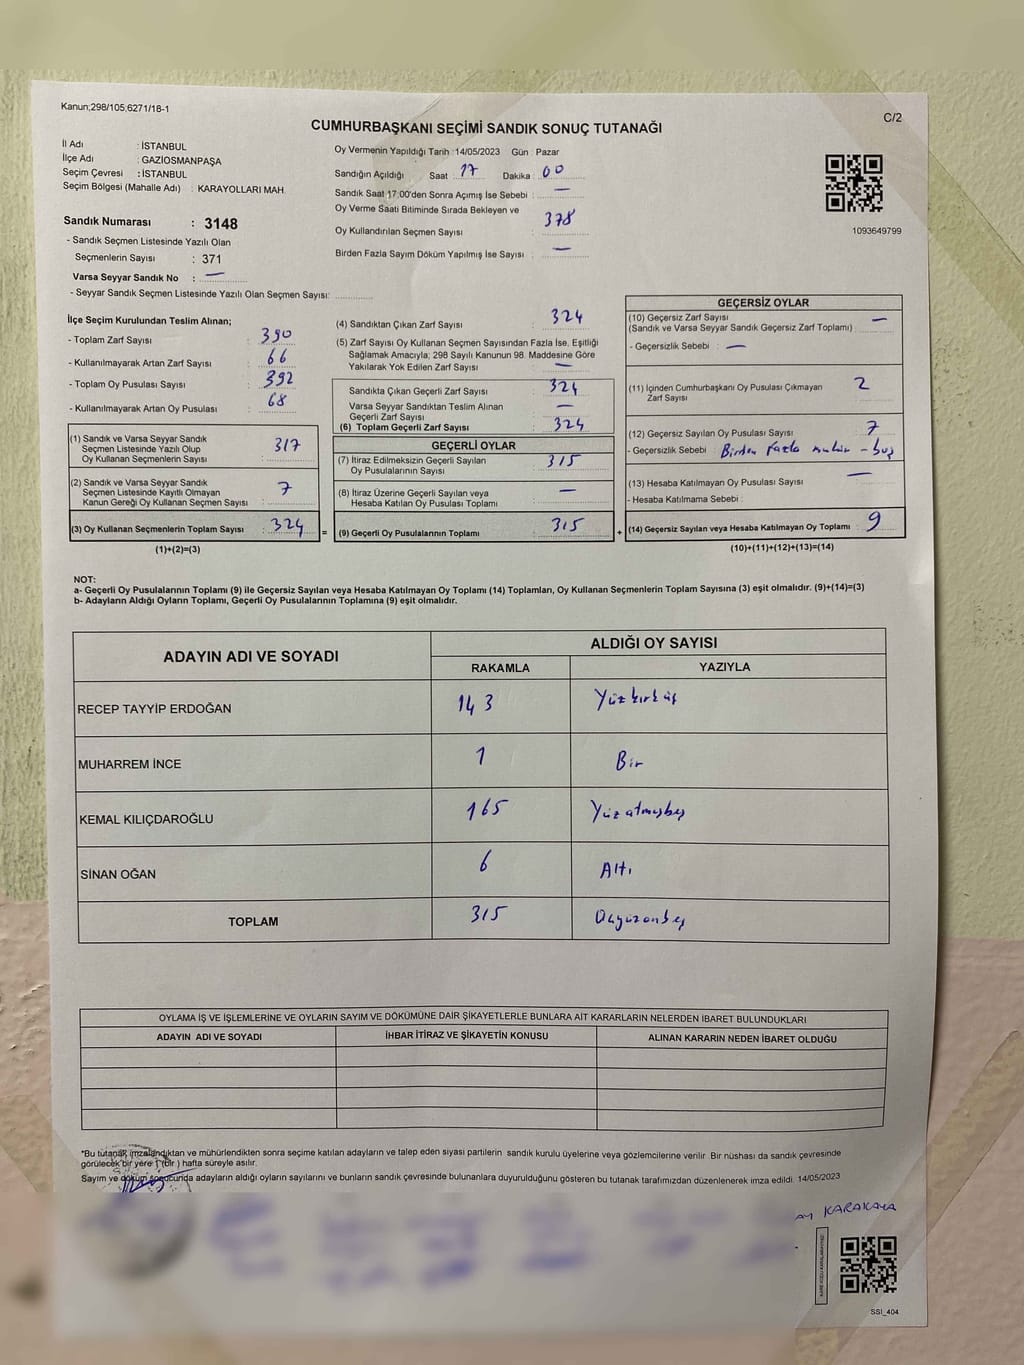 Kanun;298/105;6271/18-1
C/2
CUMHURBAŞKANI SEÇİMİ SANDIK SONUÇ TUTANAĞI
İl Adı : İSTANBUL
İlçe Adı : GAZİOSMANPAŞA
Seçim Çevresi : İSTANBUL
Seçim Bölgesi (Mahalle Adı) : KARAYOLLARI MAH.
Sandık Numarası : 3148
- Sandık Seçmen Listesinde Yazılı Olan
Seçmenlerin Sayısı : 371
Varsa Seyyar Sandık No : —
- Seyyar Sandık Seçmen Listesinde Yazılı Olan Seçmen Sayısı:
Oy Vermenin Yapıldığı Tarih :14/05/2023 Gün : Pazar
Sandığın Açıldığı Saat : 17 Dakika : 00
Sandık Saat 17:00'den Sonra Açımış İse Sebebi : —
Oy Verme Saati Bitiminde Sırada Bekleyen ve
Oy Kullandırılan Seçmen Sayısı : 378
Birden Fazla Sayım Döküm Yapılmış İse Sayısı : —
1093649799
İlçe Seçim Kurulundan Teslim Alınan;
- Toplam Zarf Sayısı : 390
- Kullanılmayarak Artan Zarf Sayısı : 66
- Toplam Oy Pusulası Sayısı : 392
- Kullanılmayarak Artan Oy Pusulası : 68
(1) Sandık ve Varsa Seyyar Sandık
Seçmen Listesinde Yazılı Olup
Oy Kullanan Seçmenlerin Sayısı : 317
(2) Sandık ve Varsa Seyyar Sandık
Seçmen Listesinde Kayıtlı Olmayan
Kanun Gereği Oy Kullanan Seçmen Sayısı : 7
(3) Oy Kullanan Seçmenlerin Toplam Sayısı : 324
(1)+(2)=(3)
(4) Sandıktan Çıkan Zarf Sayısı : 324
(5) Zarf Sayısı Oy Kullanan Seçmen Sayısından Fazla İse, Eşitliği
Sağlamak Amacıyla; 298 Sayılı Kanunun 98. Maddesine Göre
Yakılarak Yok Edilen Zarf Sayısı : —
Sandıkta Çıkan Geçerli Zarf Sayısı : 324
Varsa Seyyar Sandıktan Teslim Alınan
Geçerli Zarf Sayısı : —
(6) Toplam Geçerli Zarf Sayısı : 324
GEÇERLİ OYLAR
(7) İtiraz Edilmeksizin Geçerli Sayılan
Oy Pusulalarının Sayısı : 315
(8) İtiraz Üzerine Geçerli Sayılan veya
Hesaba Katılan Oy Pusulası Toplamı : —
= (9) Geçerli Oy Pusulalarının Toplamı : 315
GEÇERSİZ OYLAR
(10) Geçersiz Zarf Sayısı
(Sandık ve Varsa Seyyar Sandık Geçersiz Zarf Toplamı) : —
- Geçersizlik Sebebi : —
(11) İçinden Cumhurbaşkanı Oy Pusulası Çıkmayan
Zarf Sayısı : 2
(12) Geçersiz Sayılan Oy Pusulası Sayısı : 7
- Geçersizlik Sebebi : Birden fazla mühür - boş
(13) Hesaba Katılmayan Oy Pusulası Sayısı : —
- Hesaba Katılmama Sebebi :
+ (14) Geçersiz Sayılan veya Hesaba Katılmayan Oy Toplamı : 9
(10)+(11)+(12)+(13)=(14)
NOT:
a- Geçerli Oy Pusulalarının Toplamı (9) ile Geçersiz Sayılan veya Hesaba Katılmayan Oy Toplamı (14) Toplamları, Oy Kullanan Seçmenlerin Toplam Sayısına (3) eşit olmalıdır. (9)+(14)=(3)
b- Adayların Aldığı Oyların Toplamı, Geçerli Oy Pusulalarının Toplamına (9) eşit olmalıdır.
ADAYIN ADI VE SOYADI ALDIĞI OY SAYISI
RAKAMLA YAZIYLA
RECEP TAYYİP ERDOĞAN 143 Yüzkırküç
MUHARREM İNCE 1 Bir
KEMAL KILIÇDAROĞLU 165 Yüzatmışbeş
SİNAN OĞAN 6 Altı
TOPLAM 315 Üçyüzonbeş
OYLAMA İŞ VE İŞLEMLERİNE VE OYLARIN SAYIM VE DÖKÜMÜNE DAİR ŞİKAYETLERLE BUNLARA AİT KARARLARIN NELERDEN İBARET BULUNDUKLARI
ADAYIN ADI VE SOYADI İHBAR İTİRAZ VE ŞİKAYETİN KONUSU ALINAN KARARIN NEDEN İBARET OLDUĞU
*Bu tutanak imzalandıktan ve mühürlendikten sonra seçime katılan adayların ve talep eden siyasi partilerin sandık kurulu üyelerine veya gözlemcilerine verilir. Bir nüshası da sandık çevresinde
görülecek bir yere 1 (bir) hafta süreyle asılır.
Sayım ve döküm sonucunda adayların aldığı oyların sayılarını ve bunların sandık çevresinde bulunanlara duyurulduğunu gösteren bu tutanak tarafımızdan düzenlenerek imza edildi. 14/05/2023
KARAKAYA
SSI_404